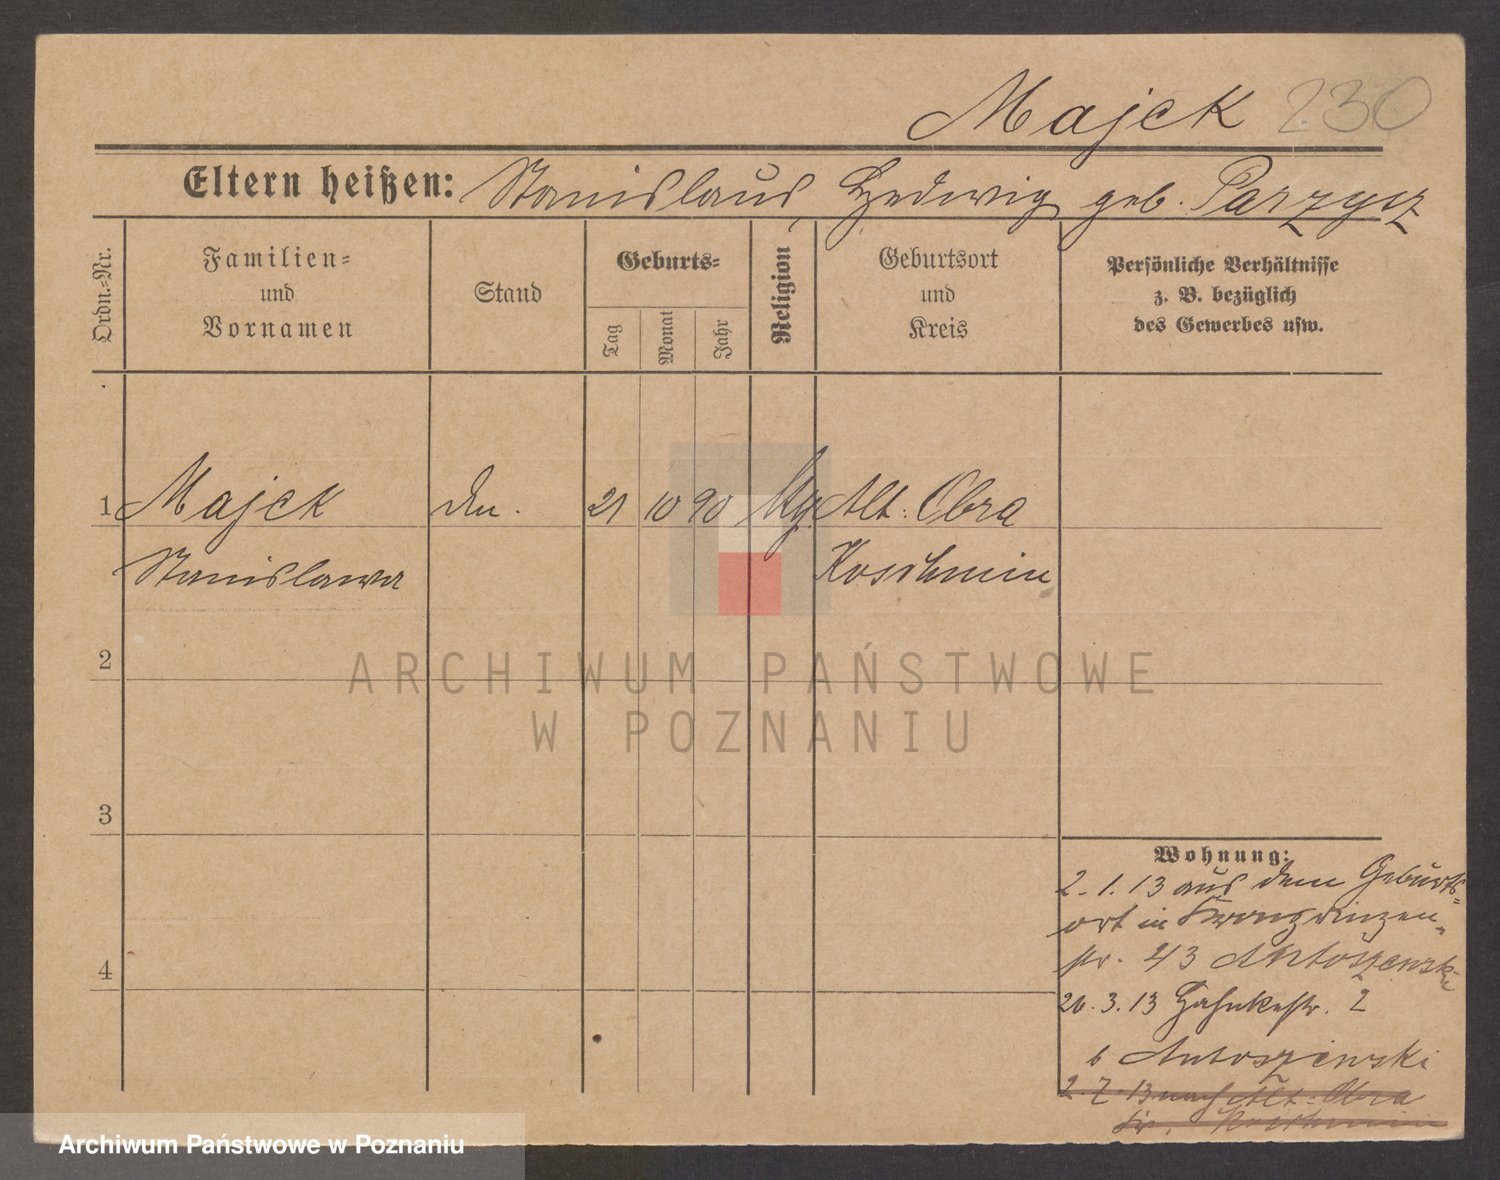 Majck 230
Eltern heißen: Stanislaus, Hedwig geb. Parzysz
Ordn.-Nr.
Familien-
und
Vornamen
Stand
Geburts-
Tag
Monat
Jahr
Religion
Geburtsort
und
Kreis
Persönliche Verhältnisse
z. B. bezüglich
des Gewerbes usw.
1 Majck 21 10 90 Alt: Obra
Stanislawa Koschmin
2
ARCHIWUM PAŃSTWOWE
W POZNANIU
3
Wohnung:
2.1.13 aus dem Geburts-
ort in Kronprinzen-
str. 43 Antoszewski
26.3.13 2
b Antoszewski
2.7.13 nach Alt-Obra
Kr. Koschmin
4
Archiwum Państwowe w Poznaniu